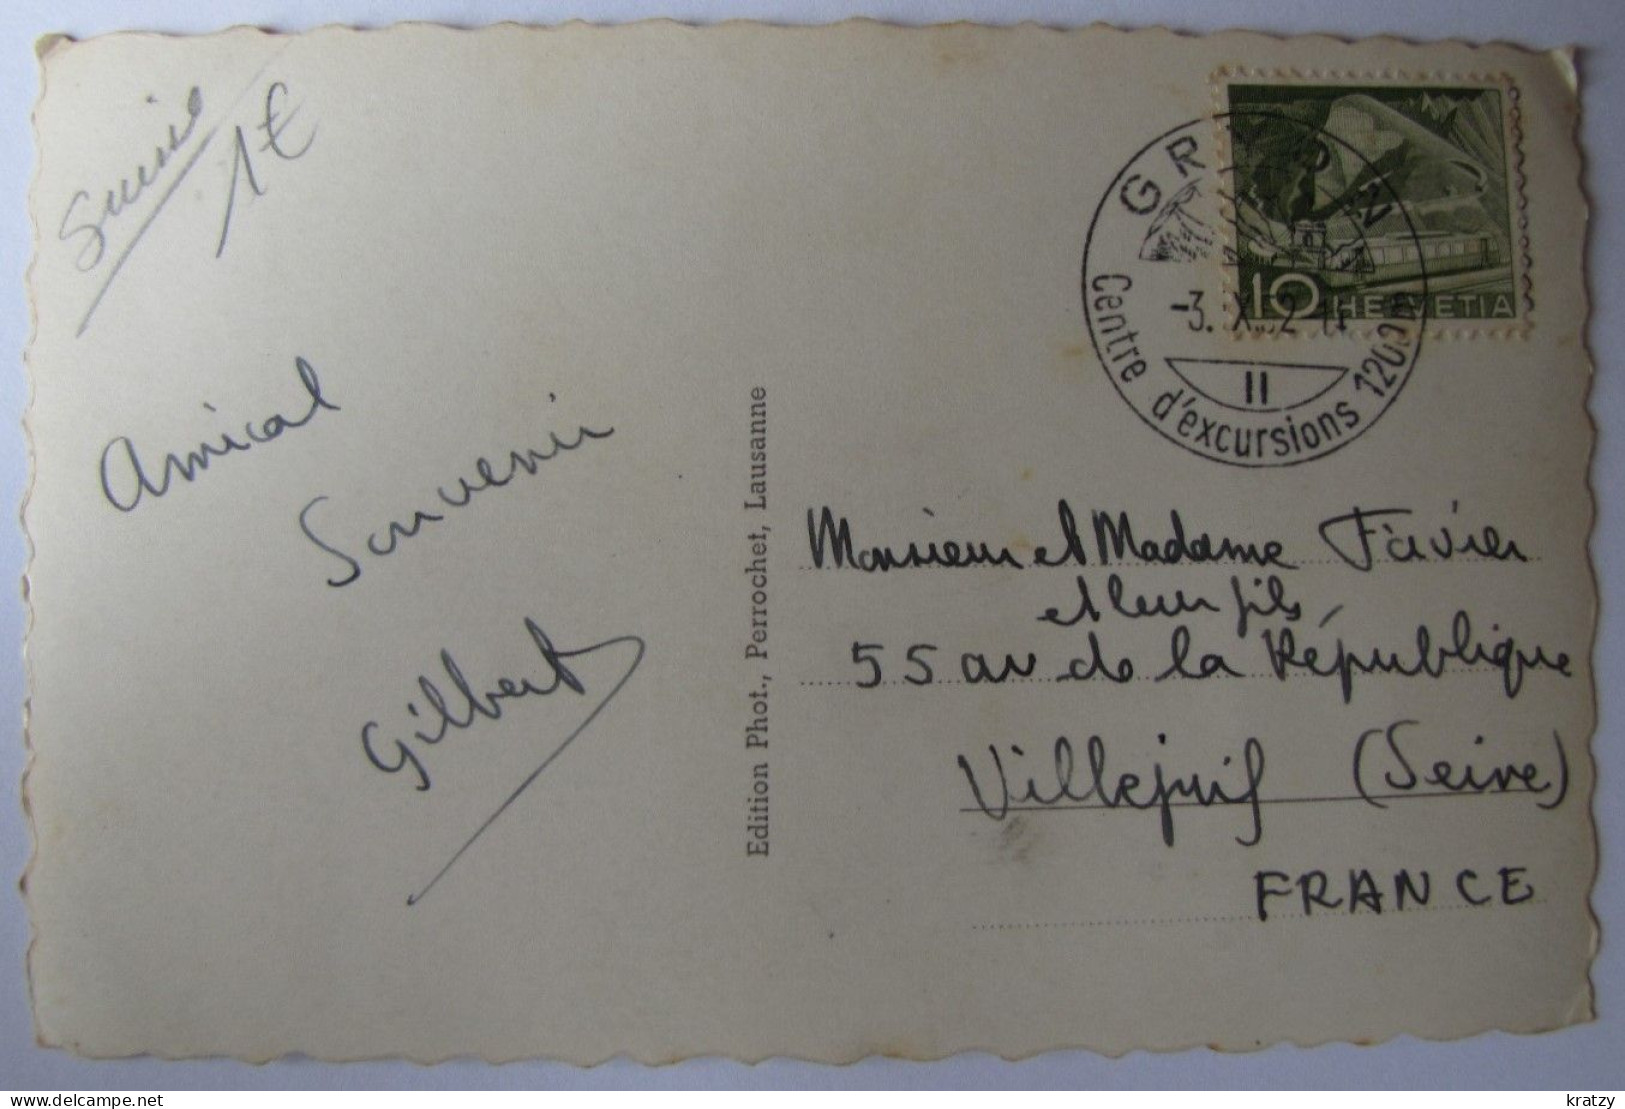 Suisse
1€
Amical
Souvenir
Gilbert
Edition Phot., Perrochet, Lausanne
Centre d'excursions
-3.
II
10 HELVETIA
Monsieur et Madame
et leur fils,
55 av de la République
Villejuif (Seine)
FRANCE
kratzy
delcampe.net